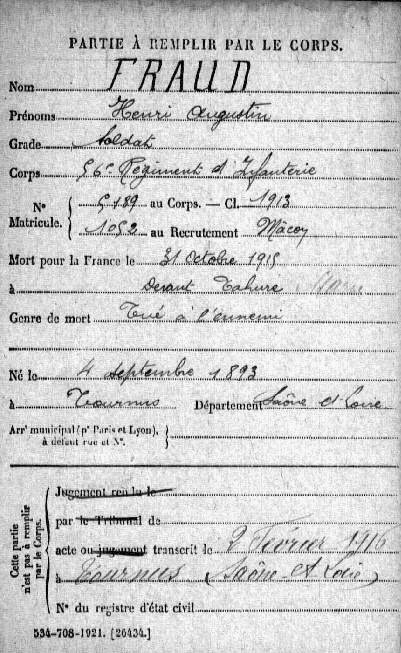 PARTIE À REMPLIR PAR LE CORPS.
Nom FRAUD
Prénoms Henri Augustin
Grade Soldat
Corps 56e Régiment d'Infanterie
N° Matricule. { 5189 au Corps. — Cl. 1913
1052 au Recrutement Mâcon
Mort pour la France le 31 Octobre 1915
à Devant Tahure Marne
Genre de mort Tué à l'ennemi
Né le 4 septembre 1893
à Tournus Département Saône et Loire
Arrt municipal (pr Paris et Lyon), à défaut rue et N°. }
Cette partie n'est pas à remplir par le Corps.
Jugement rendu le
par le Tribunal de
acte ou jugement transcrit le 2 Février 1916
à Tournus (Saône-et-Loire)
N° du registre d'état civil
534-708-1921. [26434.]